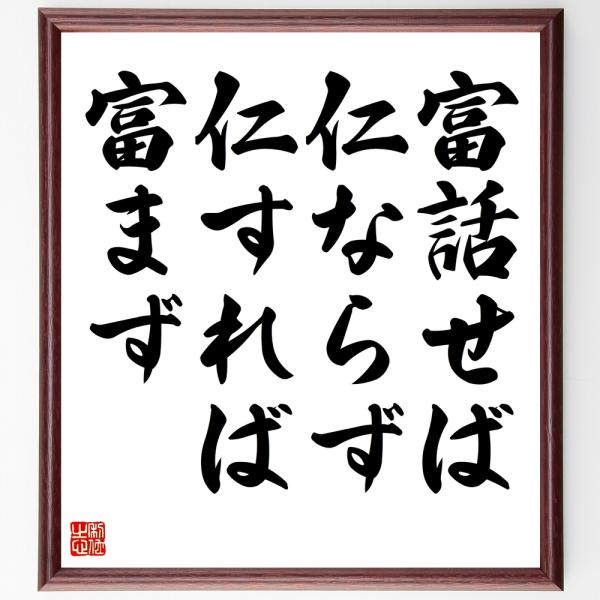 富話せば
仁ならず
仁すれば
富まず